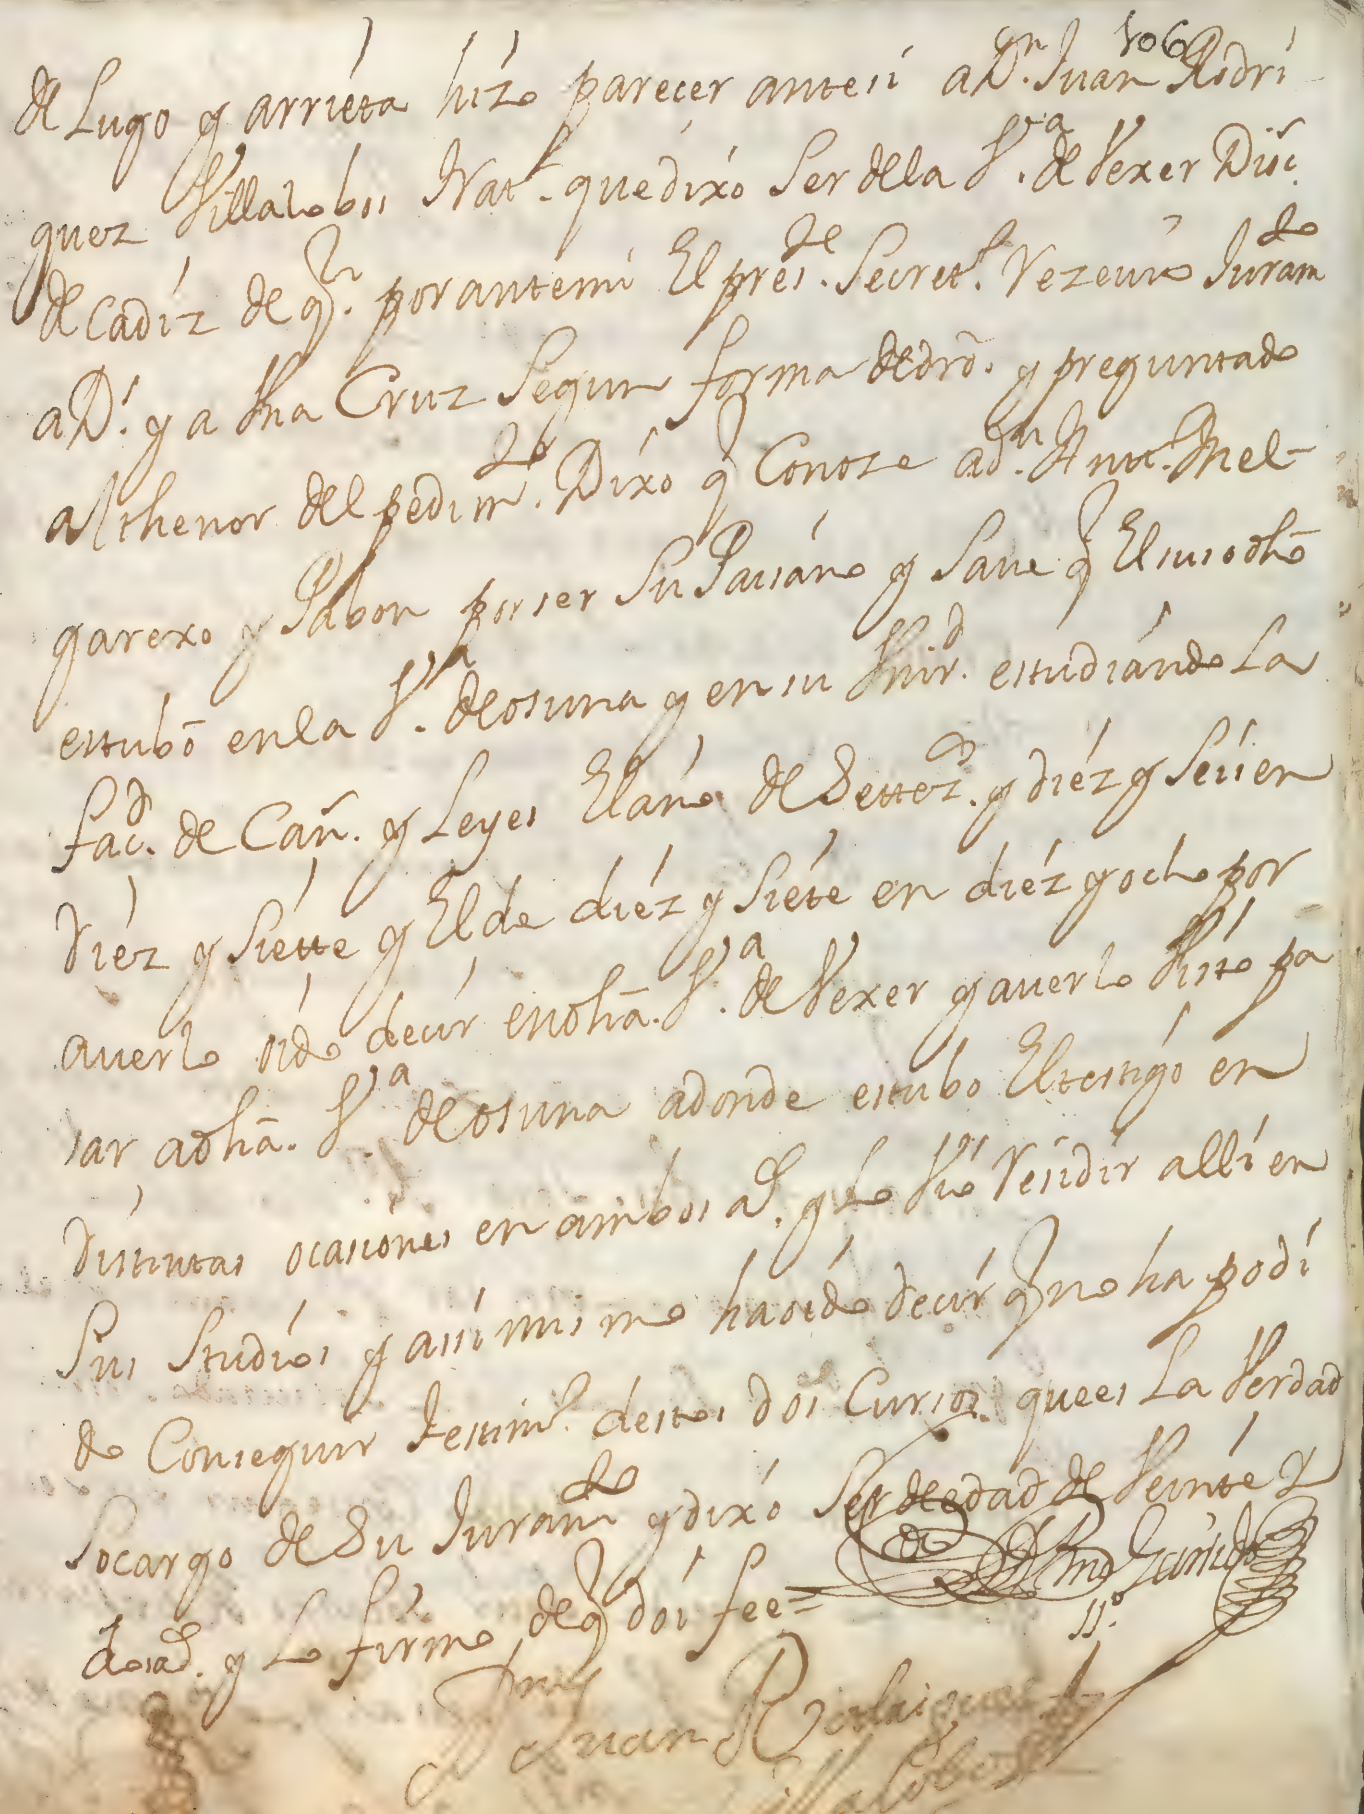 106
de Lugo y arrieta hizo parecer antesi a Dn. Juan Rodri
guez Villalobos Natl. que dixo Ser de la Va. de Vexer Dioc.
de Cadiz de qn. por antemi El preste. Secret. Rezeuio Juramdo
a D.s y a Vna Cruz Segun forma de dro. y preguntado
al thenor del pedimto. Dixo q Conoze a dn. Antt. Mel-
garexo y Pabon por ser Su Paisano y Saue q El susodho
estubo en la Va. de osuna y en su Vnird. estudiando La
facd. de Can. y Leyes El año de Settezs. y diez y Seis en
Diez y Siette y El de diez y Siete en diez y ocho por
auerlo oido decir en dha. Va. de Vexer y auerlo Visto pa
sar a dha. Va. de osuna adonde estubo El testigo en
Distintas ocasiones en ambos as. y Lo Vio Residir alli en
Sus Studios y assi mismo ha oido decir q no ha podi
do Conseguir Testimo. destos dos Cursos. que es La Verdad
Socargo de Su Juramto y dixo Ser de edad de Veinte y
dos as. y Lo firmo de q doi fee=
Juan Rodriguez
Villalobos